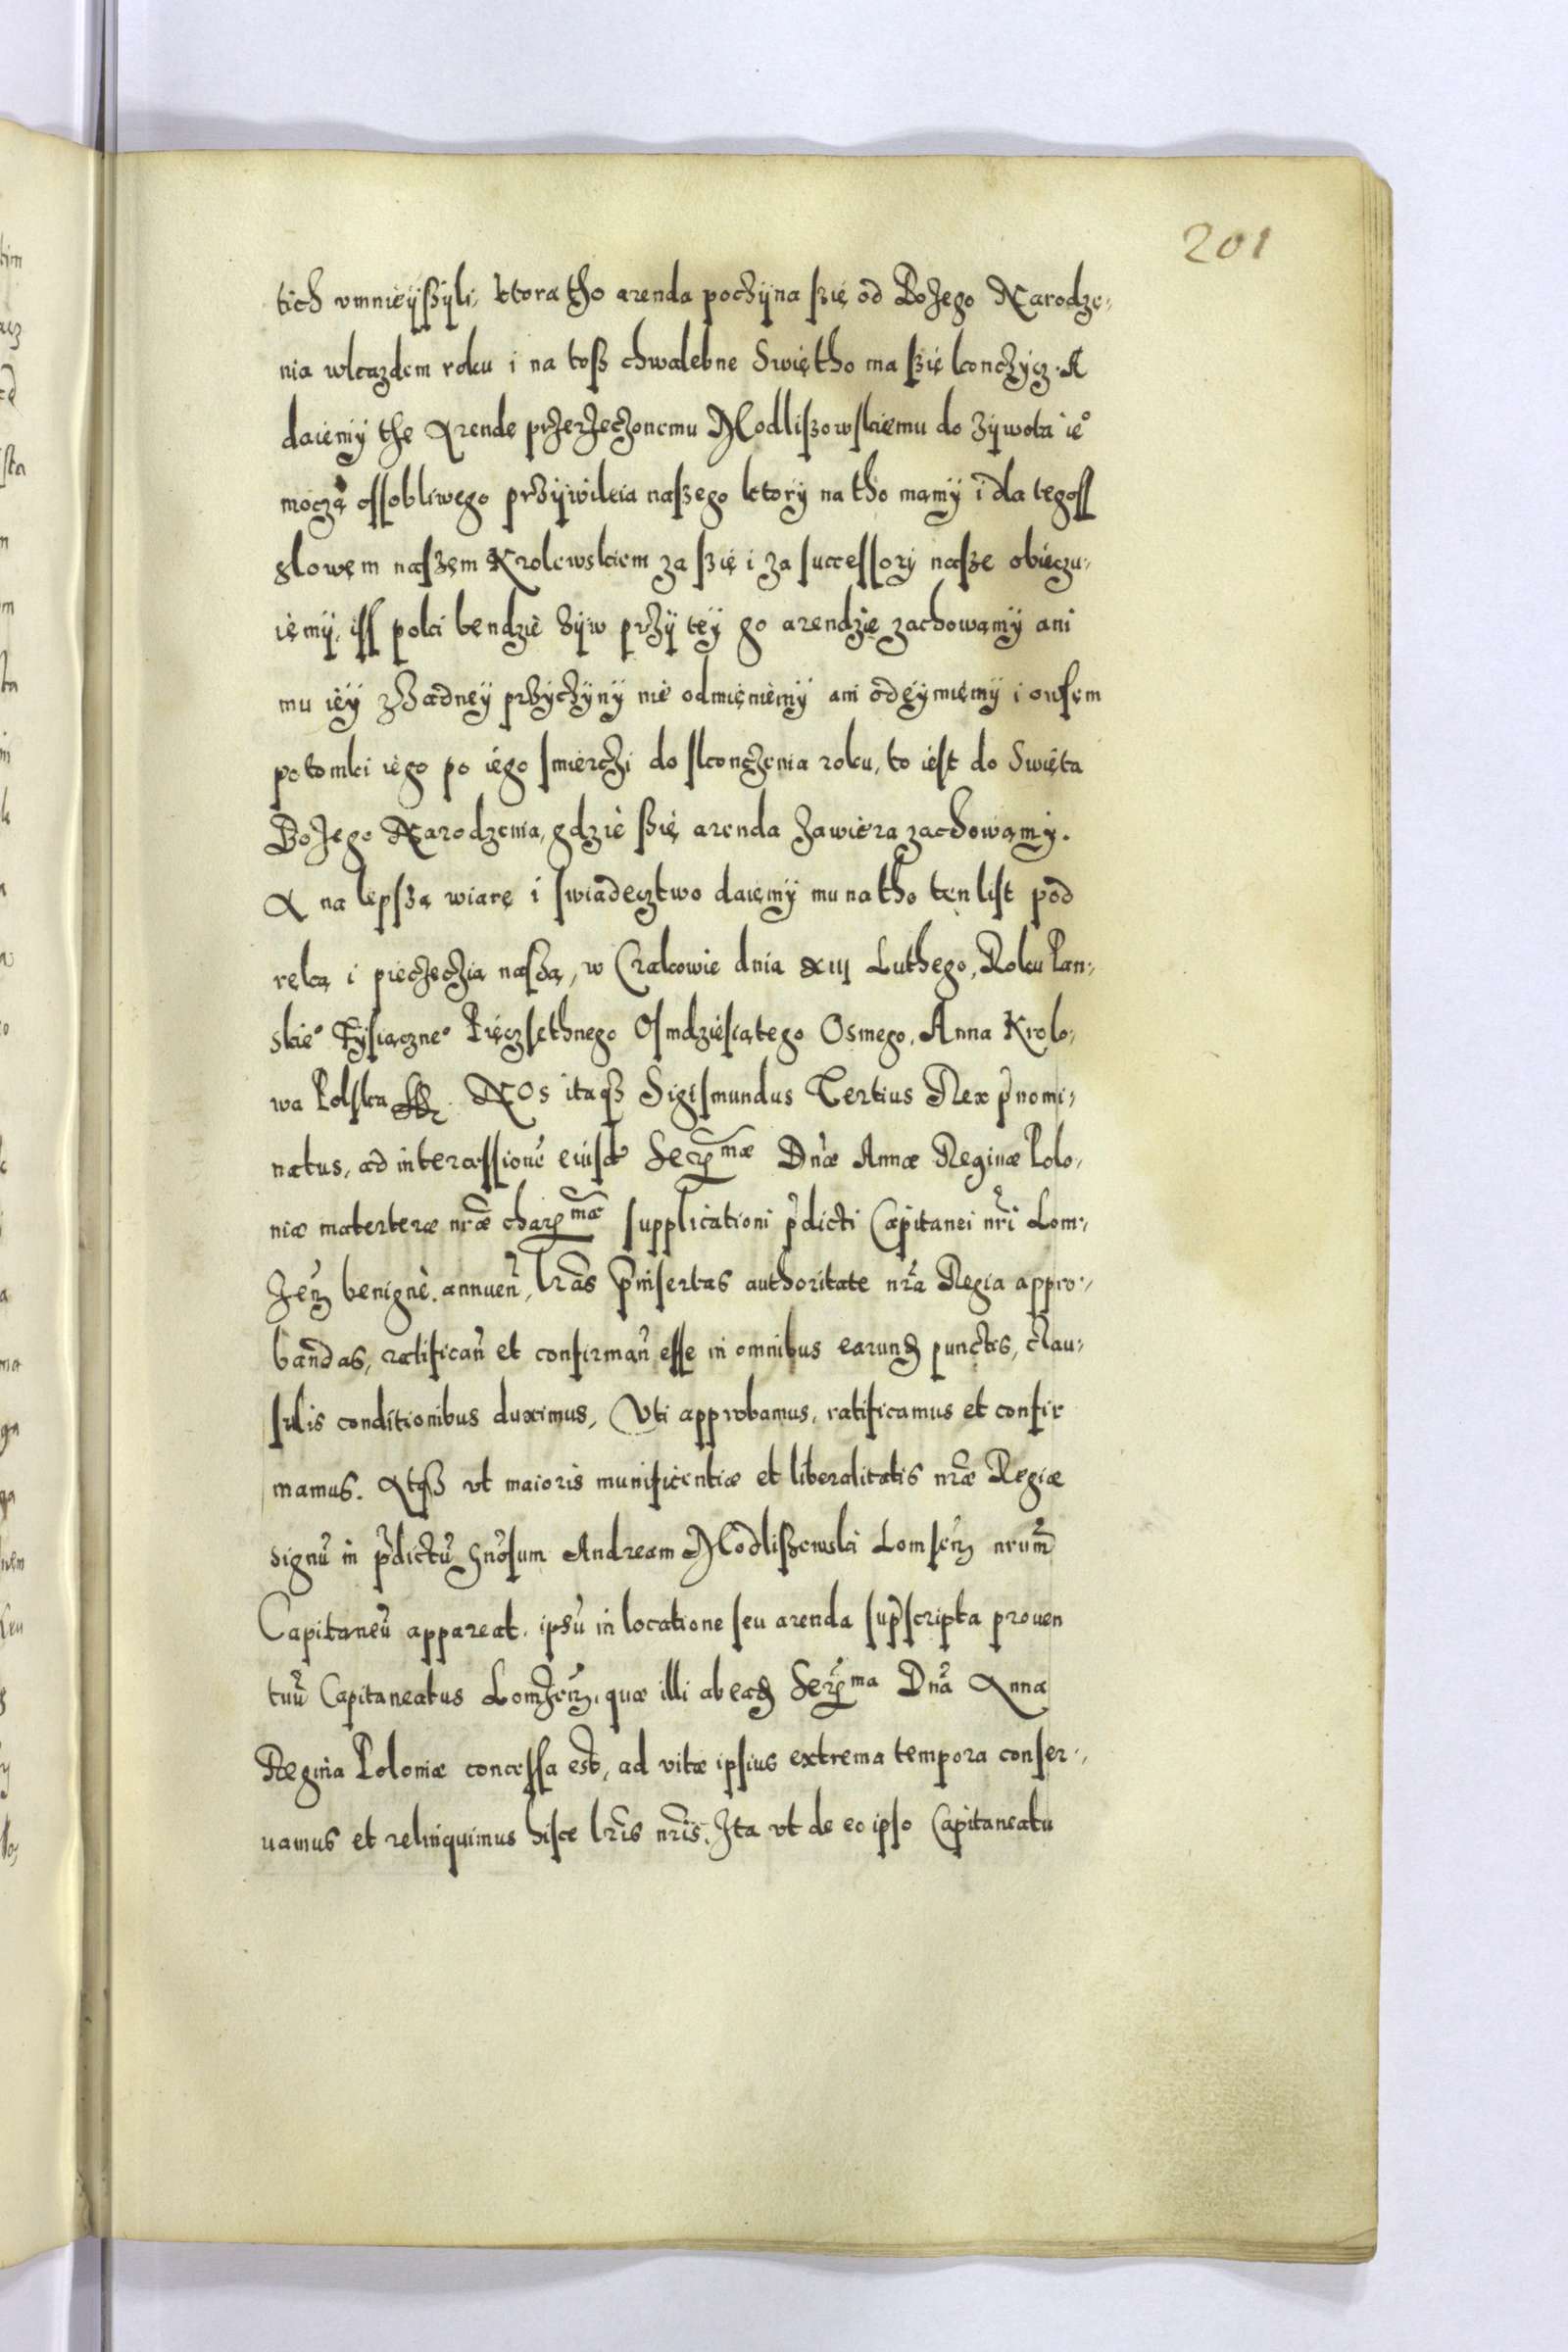 201
tich vmnieyßyli, ktora tho arenda poczyna ßię od Bożego Narodze,
nia wkazdem roku i na toß chwalebne Swiętho ma ßię konczycz. A
daięmy the Arendę przerzeczonemu Modlißowskiemu do zywota ie°
moczą ossobliwego przywileia naßego ktory na tho mamy i dla tegoß
slowem naßem Krolewskiem za ßię i za successory naße obieczu,
ięmy, iß poki bendzie żyw przy tey go arendzie zachowamy ani
mu iey zżadney przyczyny nie odmieniemy ani odeymiemy i owsem
potomki iego po iego smierczi do skonczenia roku, to iest do Swięta
Bożego Narodzenia, gdzie ßię arenda zawiera zachowamy.
A na lepßą wiarę i swiadecztwo daięmy mu na tho ten list pod
ręką i pieczęczią naßą, w Crakowie dnia XIII Luthego, Roku Pan,
skie° Tysiączne° Pięczsethnego Osmdziesiątego Osmego, Anna Krolo,
wa Polska NOs itaqꝫ Sigismundus Tertius Rex p̄nomi,
natus, ad intercessionē eiusd Serᵐᵃᵉ Dn̄æ Annæ Reginæ Polo,
niæ materteræ nr̄æ charᵐᵃᵉ supplicationi p̄dicti Capitanei nr̄i Lom,
żeń benignè annueñ, lr̄as p̄insertas authoritate nr̄a Regia appro,
bandas, ratificañ et confirmañ esse in omnibus earund punctis, clau,
sulis conditionibus duximus, Vti approbamus, ratificamus et confir
mamus. Atqꝫ vt maioris munificentiæ et liberalitatis nr̄æ Regiæ
signū in p̄dictū Gn̄osum Andream Modlißewski Lomżeñ nrūm
Capitaneū appareat, ipsū in locatione seu arenda sup̄scripta prouen
tuū Capitaneatus Lomżeñ, quæ illi ab ead Serᵐᵃ Dn̄a Anna
Regina Poloniæ concessa est, ad vitæ ipsius extrema tempora conser,
uamus et relinquimus hisce lr̄is nr̄is. Ita vt de eo ipso Capitaneatu